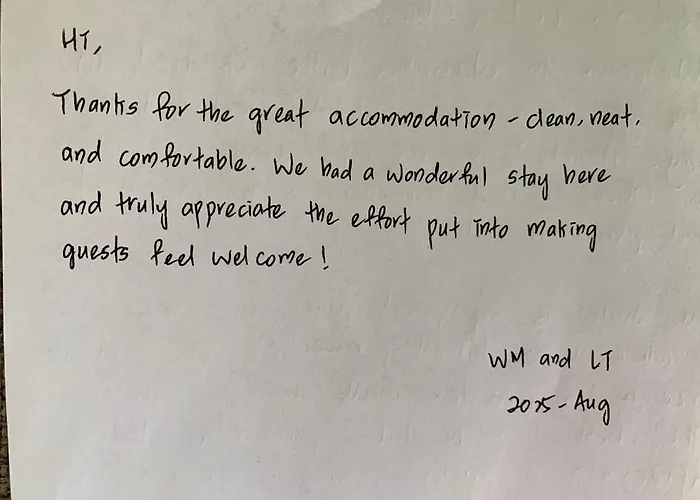 HI,
Thanks for the great accommodation - clean, neat,
and comfortable. We had a wonderful stay here
and truly appreciate the effort put into making
guests feel welcome!
WM and LT
2025-Aug